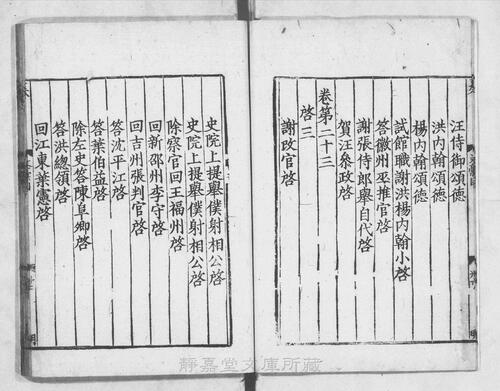 汪侍御頌德
洪内翰頌德
楊内翰頌德
試館職謝洪楊内翰小啓
答徽州巫推官啓
謝張侍郎舉自代啓
賀汪叅政啓
卷第二十三
啓三
謝政官啓
史院上提舉僕射相公啓
史院上提舉僕射相公啓
除察官回王福州啓
回新邵州李守啓
回吉州張判官啓
答沈平江啓
答葉伯益啓
除左史答陳阜卿啓
答洪總領啓
回江東葉憲啓
靜嘉堂文庫所藏